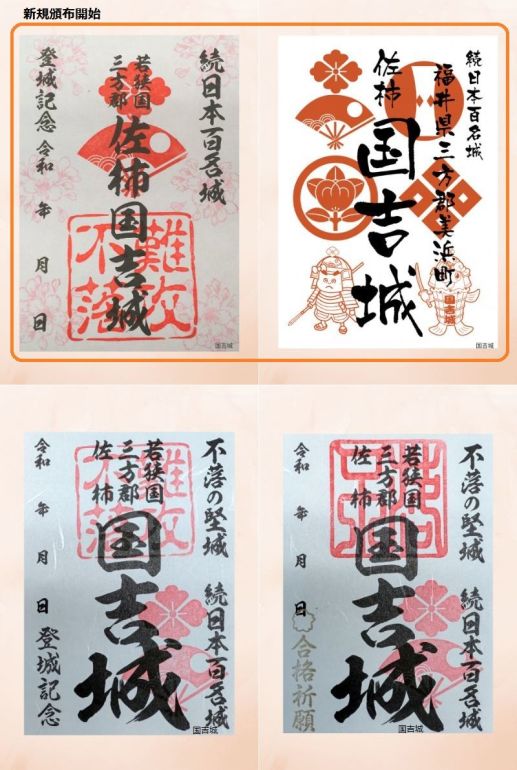 新規頒布開始
続日本百名城
若狭国
三方郡
佐柿国吉城
登城記念 令和 年 月 日
難攻
不落
国吉城
続日本百名城
福井県三方郡美浜町
佐柿
国吉城
国吉城
国吉城
不落の堅城 続日本百名城
若狭国
三方郡
佐柿
国吉城
令和 年 月 日 登城記念
難攻
不落
国吉城
不落の堅城 続日本百名城
若狭国
三方郡
佐柿
国吉城
令和 年 月 日 合格祈願
国吉城